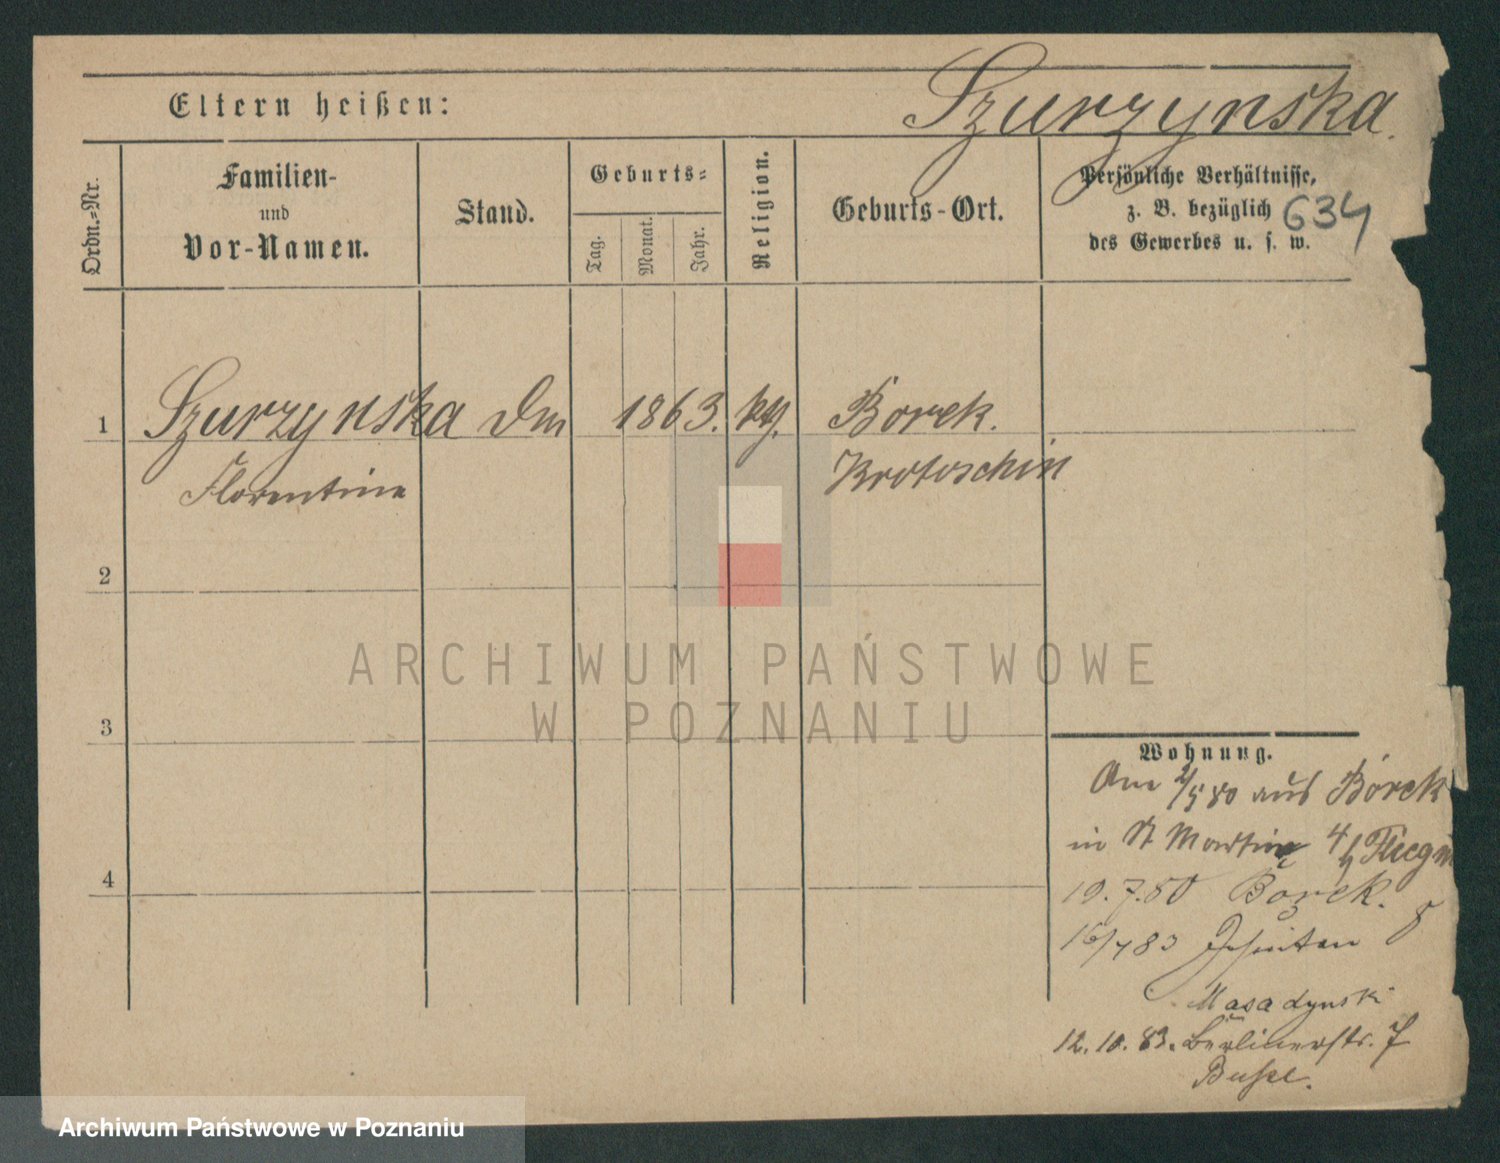 Szurzynska.
Eltern heißen:
Ordn.=Nr.
Familien-
und
Vor-Namen.
Stand.
Geburts=
Tag.
Monat.
Jahr.
Religion.
Geburts-Ort.
Persönliche Verhältnisse,
z. B. bezüglich
des Gewerbes u. s. w.
634
1 Szurzynska 1863. Borek.
Florentine Krotoschin
2
3
4
Wohnung.
Am 2/5 80 aus Borek
in St Martin 4
19.7.80 Borek.
16/7 83 Jesuiten 8
Masadynski
12.10.83. Berlinerstr. 7
ARCHIWUM PAŃSTWOWE
W POZNANIU
Archiwum Państwowe w Poznaniu